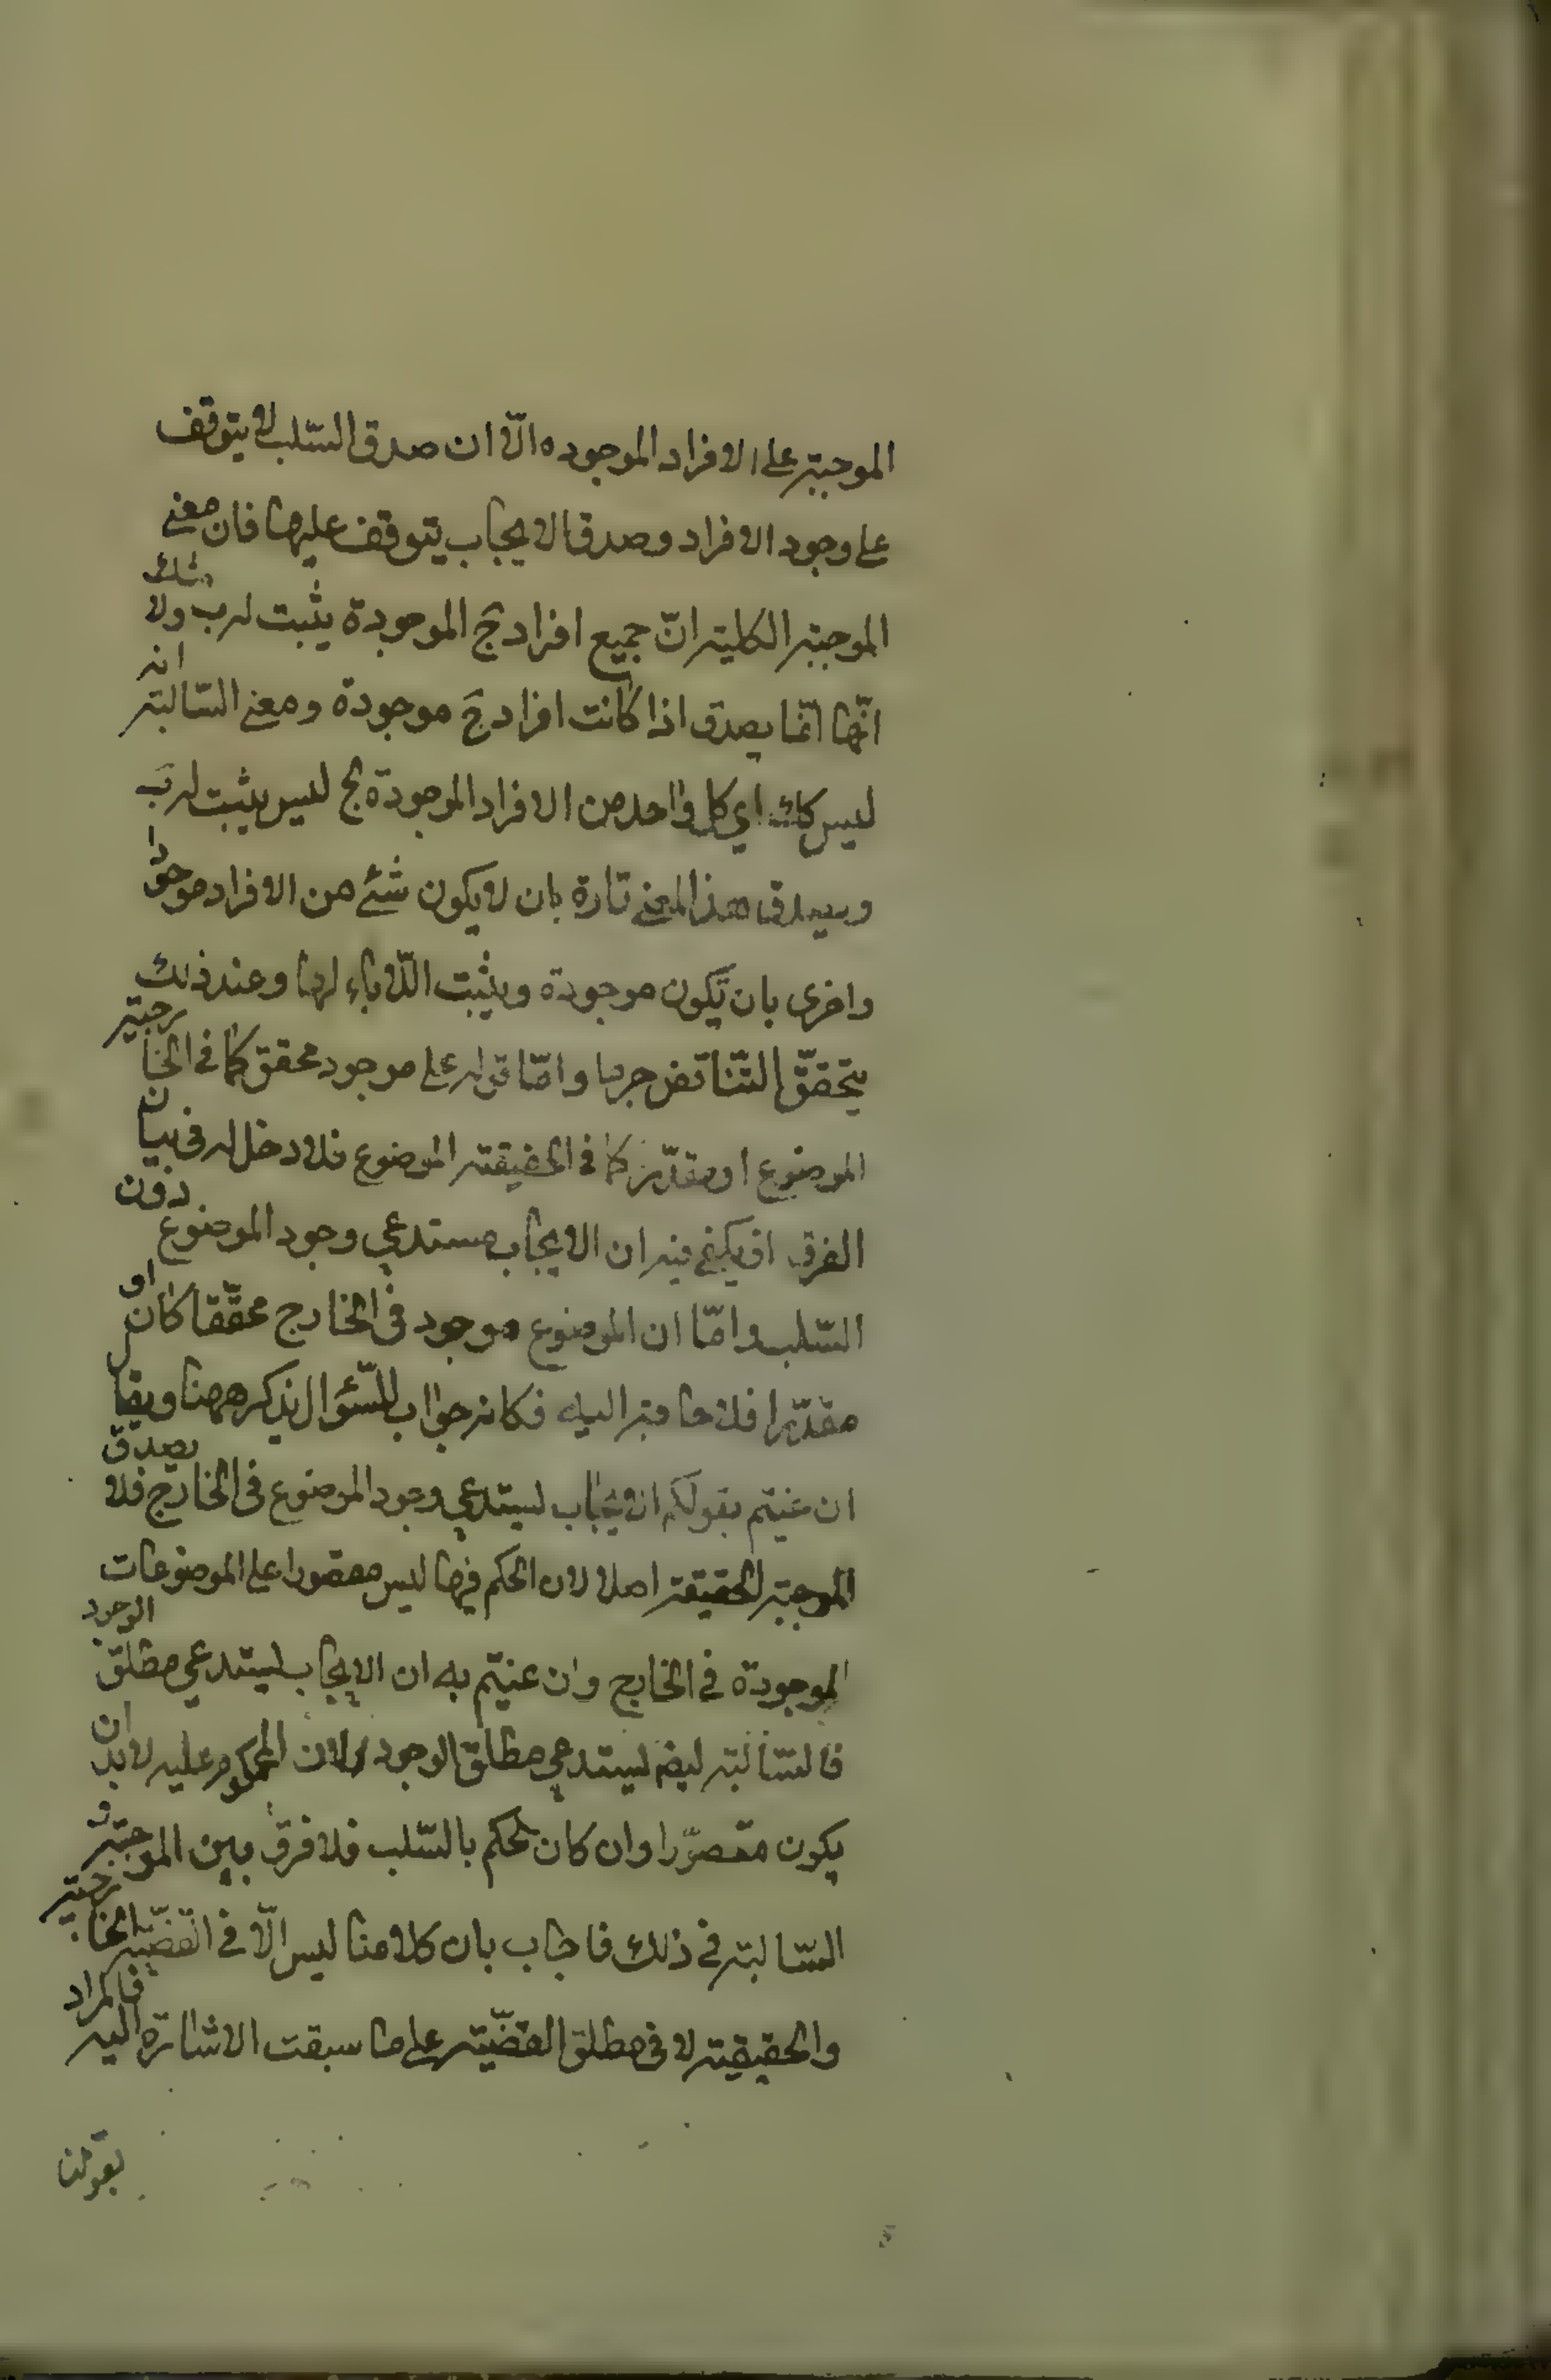 الموجبة على الافراد الموجوده الّا ان صدق السّلب لا يتوقف
على وجود الافراد وصدق الايجاب يتوقف عليها فان معنى
الموجبة الكلية انّ جميع افراد ج الموجودة يثبت له ب ولا شك
انّها انّما يصدق اذا كانت افراد ج موجودة ومعنى السّالبة انه
ليس كك اي كل واحد من الافراد الموجودة لج ليس يثبت له ب
ويصدق هذا المعنى تارة بان لا يكون شئ من الافراد موجودا
واخرى بان تكون موجودة ويثبت اللّاباء لها وعند ذلك
يتحقّق التّناقض جزما وامّا قوله على موجود محقق كما في الخارجية
الموضوع او مقدّر كما في الحقيقة الموضوع فلا دخل له في بيان
الفرق اذ يكفي فيه ان الايجاب مستدعي وجود الموضوع دون
السّلب وامّا ان الموضوع موجود في الخارج محقّقا كان او
مقدّرا فلا حاجة اليه فكانه جواب للسّؤال يذكر ههنا ويقال
ان عنيتم بقولكم الايجاب ليستدعي وجود الموضوع في الخارج فلا يصدق
الموجبة الحقيقة اصلا لان الحكم فيها ليس مقصورا على الموضوعات
الموجودة في الخارج وان عنيتم به ان الايجاب ليستدعي مطلق الوجود
فالسّالبة ليضا ليستدعي مطلق الوجود لان المحكوم عليه لا بد ان
يكون متصوّرا وان كان لحكم بالسّلب فلا فرق بين الموجبة و
السّالبة في ذلك فاجاب بان كلامنا ليس الّا في القضيّة الخارجية
والحقيقية لا في مطلق القضيّة على ما سبقت الاشارة اليه فالمراد
بقولنا